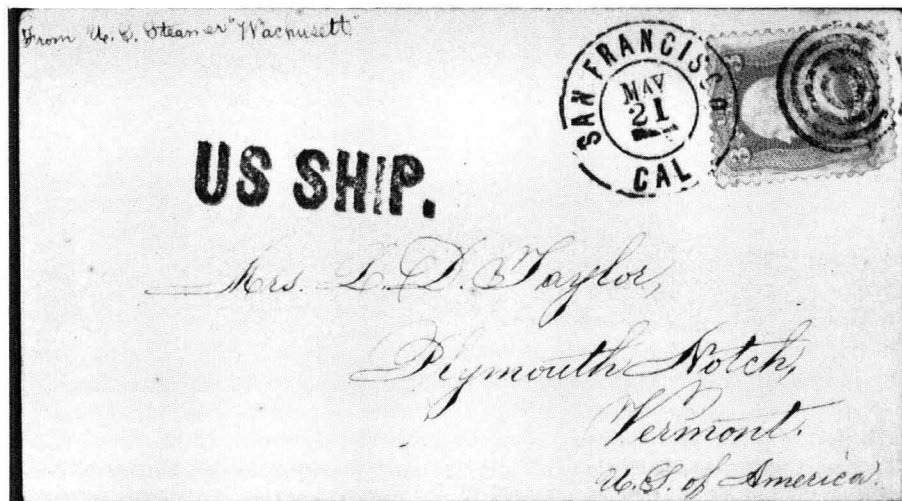 From U.S. Steamer "Wachusett"
SAN FRANCISCO
MAY
21
CAL
3
3
US SHIP.
Mrs. L. D. Taylor,
Plymouth Notch,
Vermont.
U.S. of America.